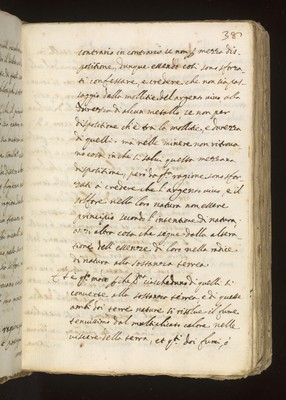 38
contrario in contrario se non p mezzo dis-
positione, dunque essendo così sono sforza-
ti confessare, e credere che non sia pas-
saggio dalla mollitie del argento vivo alla
durezza di alcun metallo se non per
dispositione che è tra la mollitie, e durezza
di quelli; ma nelle minere non ritrova-
no cosa in che si salvi questa mezzana
dispositione, però da q.ta ragione sono sfor-
zati a credere che l'argento vivo, e il
solfore nella loro natura non essere
principio secondo l'intentione di natura
altra cosa che segue dalla altera-
tione dell essenze di loro nella radice
di natura alla sostanza terrea
Et è q.to modo che ciascheduno di quelli si
converte alla sostanza terrea, e di queste
ambi doi terre nature si risolve il fumo
tenuissimo dal moltiplicato calore nelle
viscere della terra, et q.ti doi fumi, è